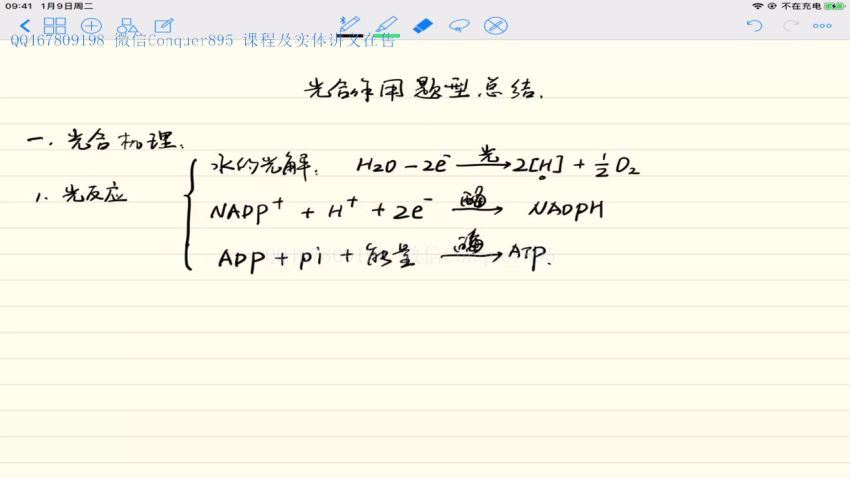 09:41 1月9日周二 不在充电
QQ467809198 微信Conquer895 课程及实体讲义在售
光合作用题型总结.
一.光合机理:
水的光解: H2O - 2e⁻ —光→ 2[H] + ½O₂
1. 光反应
NADP⁺ + H⁺ + 2e⁻ —酶→ NADPH
ADP + pi + 能量 —酶→ ATP.